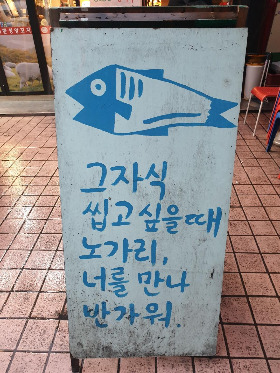 그자식
씹고싶을때
노가리,
너를 만나
반가워.